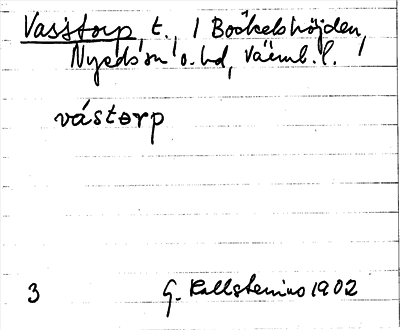 Vasstorp, t., 1 Bockelshöjden,
Nyeds sn o. hd, Värml. l.
vástorp
3 G. Kallstenius 1902